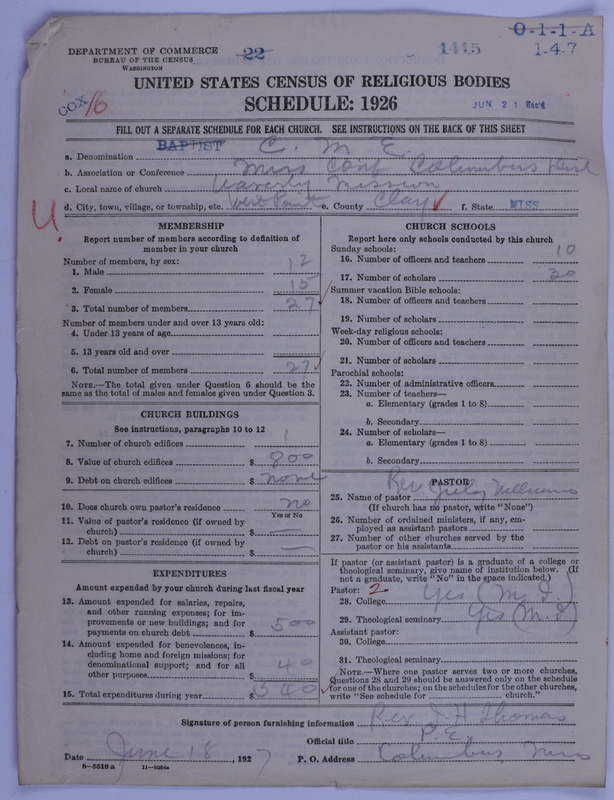 0-1-1-A
DEPARTMENT OF COMMERCE
BUREAU OF THE CENSUS
WASHINGTON
22
1415
1.4.7
COX 16
UNITED STATES CENSUS OF RELIGIOUS BODIES
SCHEDULE: 1926
JUN 21 Rec'd
FILL OUT A SEPARATE SCHEDULE FOR EACH CHURCH. SEE INSTRUCTIONS ON THE BACK OF THIS SHEET
BAPTIST
a. Denomination C. M. E
b. Association or Conference Miss Conf Columbus Dist
c. Local name of church Waverly Mission
d. City, town, village, or township, etc. West Point e. County Clay f. State MISS
MEMBERSHIP
Report number of members according to definition of
member in your church
Number of members, by sex:
1. Male 12
2. Female 15
3. Total number of members 27
Number of members under and over 13 years old:
4. Under 13 years of age
5. 13 years old and over
6. Total number of members 27
NOTE.—The total given under Question 6 should be the
same as the total of males and females given under Question 3.
CHURCH BUILDINGS
See instructions, paragraphs 10 to 12
7. Number of church edifices 1
8. Value of church edifices $ 800
9. Debt on church edifices $ none
10. Does church own pastor's residence no
Yes or No
11. Value of pastor's residence (if owned by
church) $
12. Debt on pastor's residence (if owned by
church) $ —
EXPENDITURES
Amount expended by your church during last fiscal year
13. Amount expended for salaries, repairs,
and other running expenses; for im-
provements or new buildings; and for
payments on church debt $ 500
14. Amount expended for benevolences, in-
cluding home and foreign missions; for
denominational support; and for all
other purposes $ 40
15. Total expenditures during year $ 540
CHURCH SCHOOLS
Report here only schools conducted by this church
Sunday schools:
16. Number of officers and teachers 10
17. Number of scholars 30
Summer vacation Bible schools:
18. Number of officers and teachers
19. Number of scholars
Week-day religious schools:
20. Number of officers and teachers
21. Number of scholars
Parochial schools:
22. Number of administrative officers
23. Number of teachers—
a. Elementary (grades 1 to 8)
b. Secondary
24. Number of scholars—
a. Elementary (grades 1 to 8)
b. Secondary
PASTOR
25. Name of pastor Rev Williams
(If church has no pastor, write "None")
26. Number of ordained ministers, if any, em-
ployed as assistant pastors
27. Number of other churches served by the
pastor or his assistants
If pastor (or assistant pastor) is a graduate of a college or
theological seminary, give name of institution below. (If
not a graduate, write "No" in the space indicated.)
Pastor: 2
28. College Yes (M. I.)
29. Theological seminary Yes (M. I)
Assistant pastor:
30. College
31. Theological seminary
NOTE.—Where one pastor serves two or more churches,
Questions 28 and 29 should be answered only on the schedule
for one of the churches; on the schedules for the other churches,
write "See schedule for church."
Signature of person furnishing information Rev. J. H Thomas
Official title P. E.
Date June 18, 1927 P. O. Address Columbus Miss
8—5518 a 11—9204a